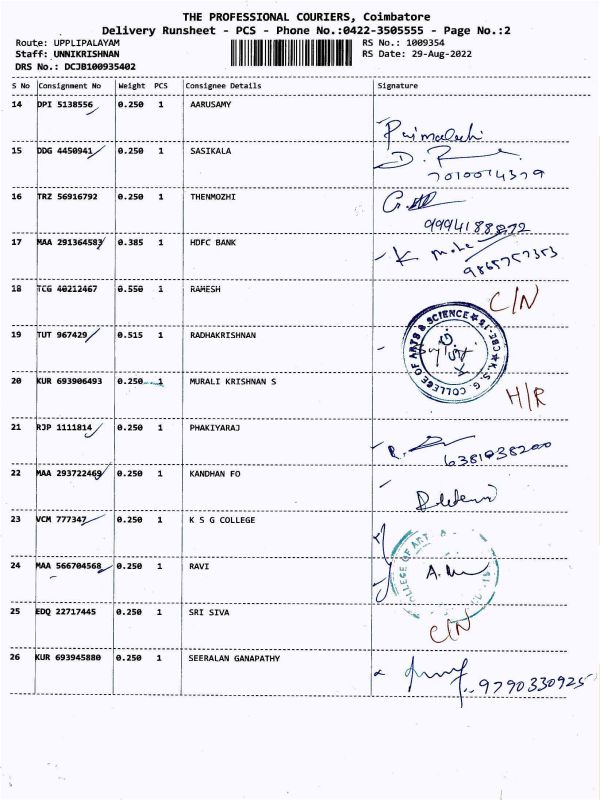 THE PROFESSIONAL COURIERS, Coimbatore
Delivery Runsheet - PCS - Phone No.:0422-3505555 - Page No.:2
Route: UPPLIPALAYAM RS No.: 1009354
Staff: UNNIKRISHNAN RS Date: 29-Aug-2022
DRS No.: DCJB100935402
S No Consignment No Weight PCS Consignee Details Signature
14 DPI 5138556 0.250 1 AARUSAMY
15 DDG 4450941 0.250 1 SASIKALA
7010074379
16 TRZ 56916792 0.250 1 THENMOZHI
9994188872
17 MAA 291364583 0.385 1 HDFC BANK
9865757353
18 TCG 40212467 0.550 1 RAMESH C/N
19 TUT 967429 0.515 1 RADHAKRISHNAN
K.S.G. COLLEGE OF ARTS & SCIENCE ★ CBE-15 ★
20 KUR 693906493 0.250 1 MURALI KRISHNAN S H/R
21 RJP 1111814 0.250 1 PHAKIYARAJ
6381938200
22 MAA 293722469 0.250 1 KANDHAN FO
23 VCM 777347 0.250 1 K S G COLLEGE
24 MAA 566704568 0.250 1 RAVI
COLLEGE OF ART
25 EDQ 22717445 0.250 1 SRI SIVA C/N
26 KUR 693945880 0.250 1 SEERALAN GANAPATHY
9790330925